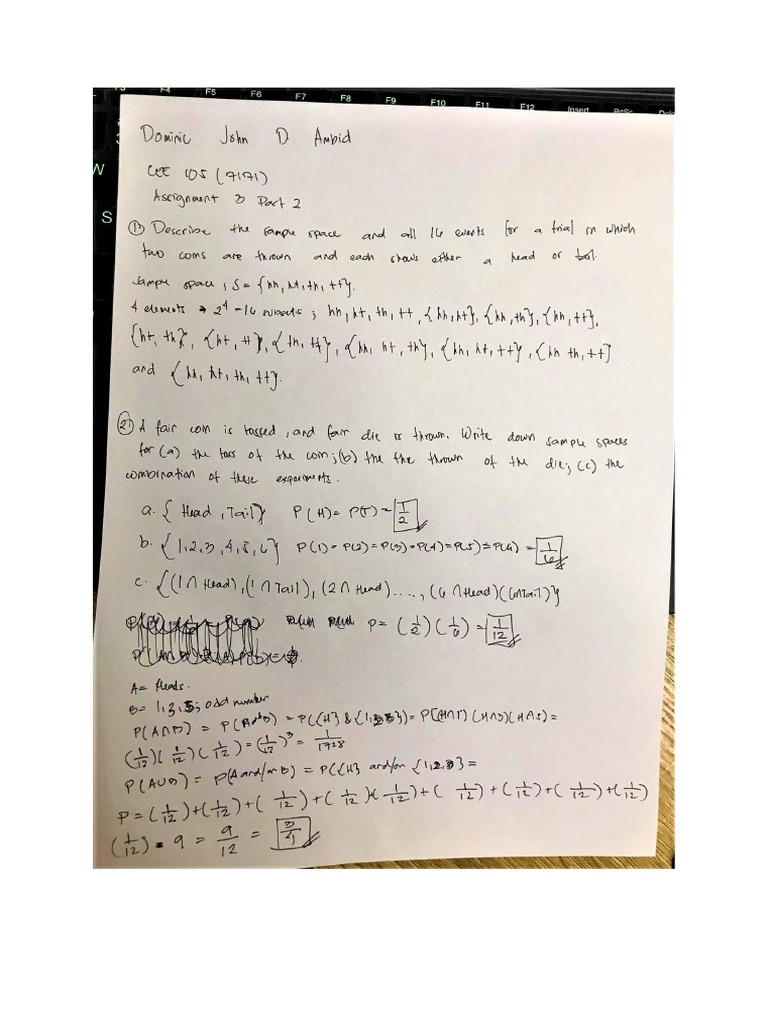 F4 F5 F6 F7 F8 F9 F10 F11 F12 Insert PrtSc
W
S
Dominic John D Ambid
CEE 105 (7171)
Assignment 3 Part 2
1) Describe the sample space and all 16 events for a trial in which
two coins are thrown and each shows either a head or tail.
Sample space, S = {hh, ht, th, tt}.
4 elements → 2^4 = 16 subsets; hh, ht, th, tt, {hh, ht}, {hh, th}, {hh, tt},
{ht, th}, {ht, tt}, {th, tt}, {hh, ht, th}, {hh, ht, tt}, {hh th, tt}
and {hh, ht, th, tt}.
2) A fair coin is tossed, and fair die is thrown. Write down sample spaces
for (a) the toss of the coin; (b) the thrown of the die; (c) the
combination of these experiments.
a. {Head, Tail} P(H) = P(T) = 1/2
b. {1,2,3,4,5,6} P(1) = P(2) = P(3) = P(4) = P(5) = P(6) = 1/6
c. {(1∩Head), (1∩Tail), (2∩Head) ...., (6∩Head)(6∩Tail)}
P = (1/2)(1/6) = 1/12
A = Heads.
B = 1, 3, 5; odd number
P(A∩B) = P(A&B) = P({H} & {1,3,5}) = P(H∩1)(H∩3)(H∩5) =
(1/12)(1/12)(1/12) = (1/12)^3 = 1/1728
P(A∪B) = P(A and/or B) = P({H} and/or {1,2,3} =
P = (1/12)+(1/12)+(1/12)+(1/12)+(1/12)+(1/12)+(1/12)+(1/12)+(1/12)
(1/12) • 9 = 9/12 = 3/4